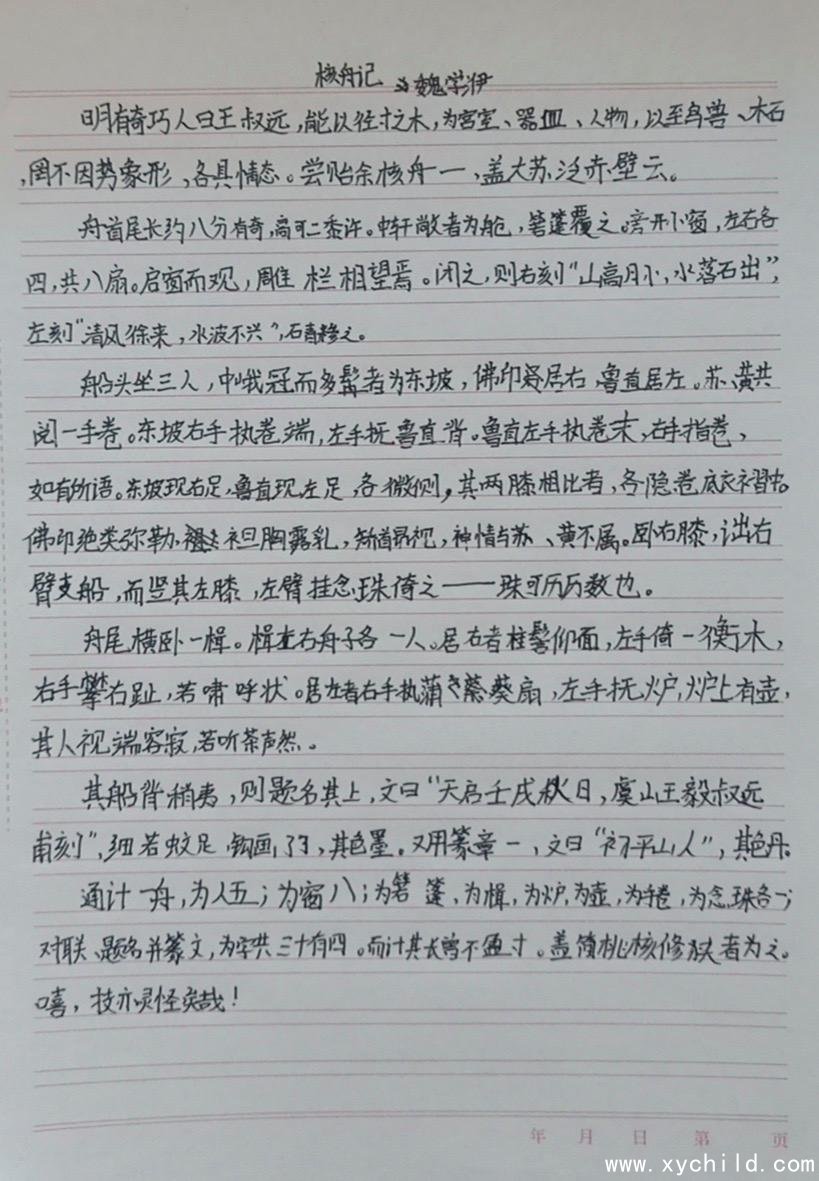 核舟记 魏学洢
明有奇巧人曰王叔远,能以径寸之木,为宫室、器皿、人物,以至鸟兽、木石
,罔不因势象形,各具情态。尝贻余核舟一,盖大苏泛赤壁云。
舟首尾长约八分有奇,高可二黍许。中轩敞者为舱,箬篷覆之。旁开小窗,左右各
四,共八扇。启窗而观,雕栏相望焉。闭之,则右刻“山高月小,水落石出”,
左刻“清风徐来,水波不兴”,石青糁之。
船头坐三人,中峨冠而多髯者为东坡,佛印居右,鲁直居左。苏、黄共
阅一手卷。东坡右手执卷端,左手抚鲁直背。鲁直左手执卷末,右手指卷,
如有所语。东坡现右足,鲁直现左足,各微侧,其两膝相比者,各隐卷底衣褶中。
佛印绝类弥勒,袒胸露乳,矫首昂视,神情与苏、黄不属。卧右膝,诎右
臂支船,而竖其左膝,左臂挂念珠倚之——珠可历历数也。
舟尾横卧一楫。楫左右舟子各一人。居右者椎髻仰面,左手倚一衡木,
右手攀右趾,若啸呼状。居左者右手执蒲葵扇,左手抚炉,炉上有壶,
其人视端容寂,若听茶声然。
其船背稍夷,则题名其上,文曰“天启壬戌秋日,虞山王毅叔远
甫刻”,细若蚊足,钩画了了,其色墨。又用篆章一,文曰“初平山人”,其色丹。
通计一舟,为人五;为窗八;为箬篷,为楫,为炉,为壶,为手卷,为念珠各一;
对联、题名并篆文,为字共三十有四。而计其长曾不盈寸。盖简桃核修狭者为之。
嘻,技亦灵怪矣哉!
年 月 日 第 页
www.xychild.com